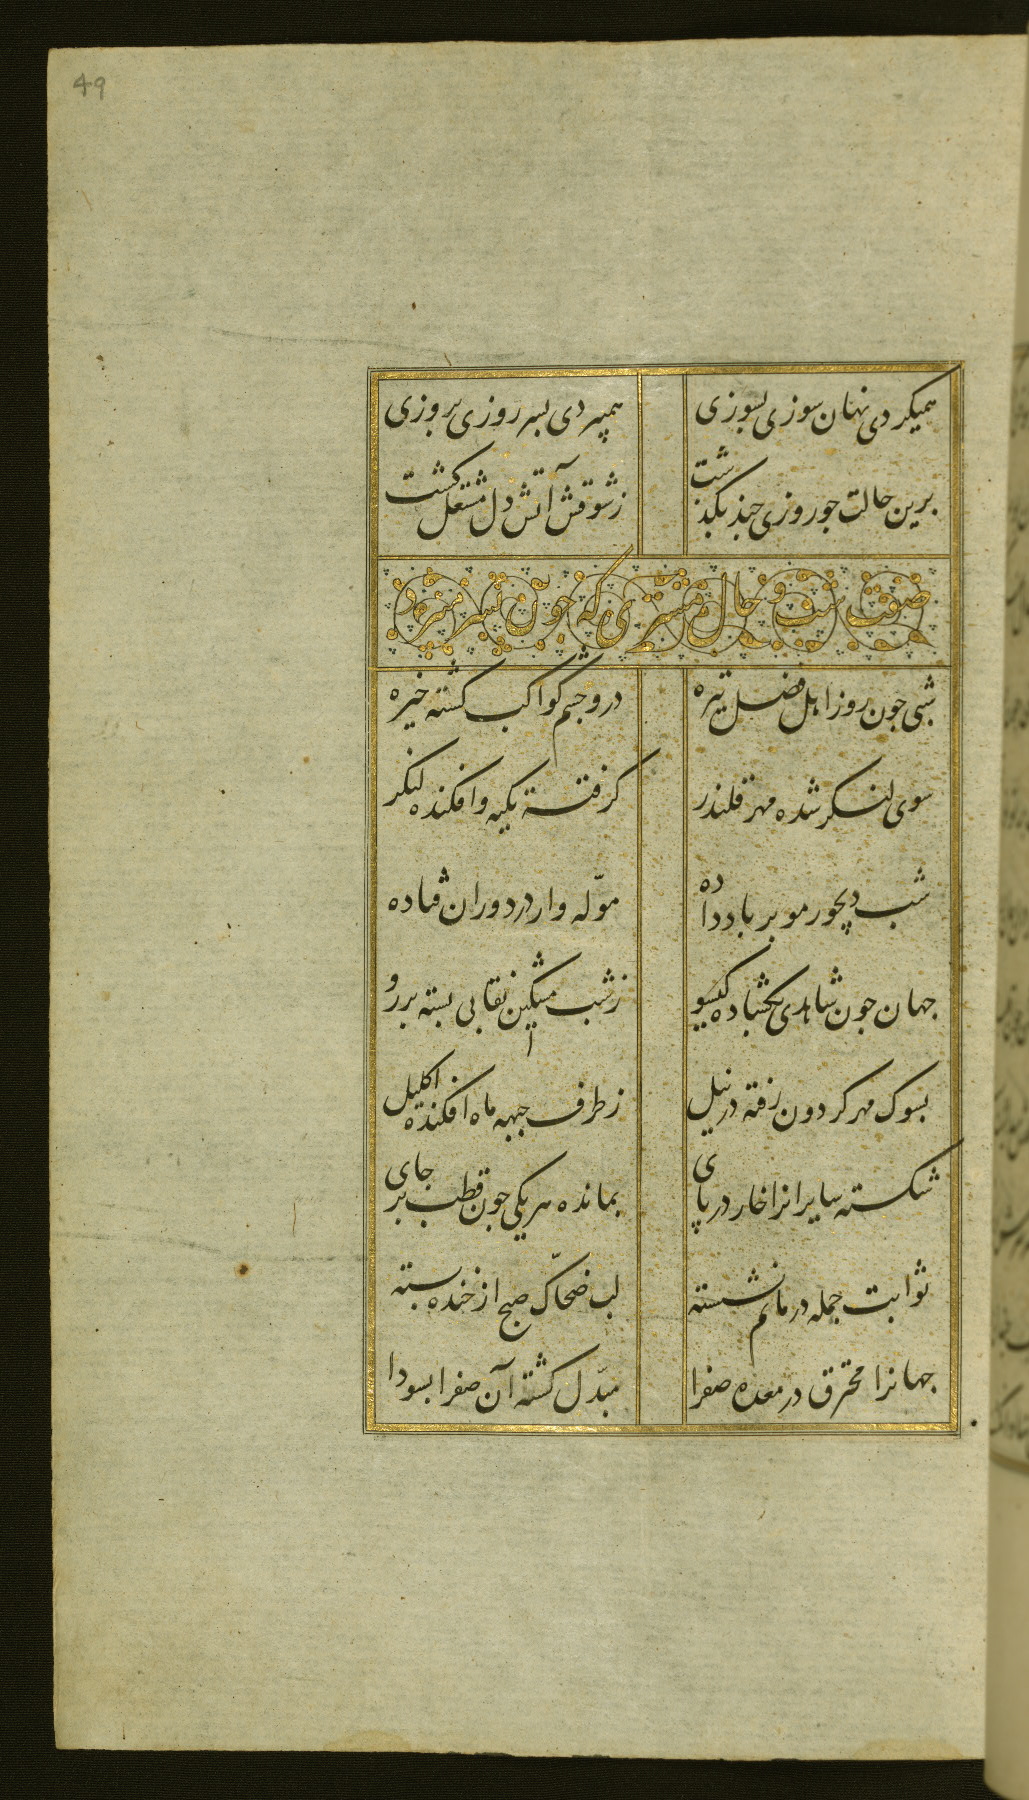 49
همیکردی نهان سوزی بسوزی همیبردی بسر روزی بروزی
برین حالت جو روزی جند بکذشت زشوقش آتش دل مشتعل کشت
صفت شب و حال مشتری که جون
شبی جون روز اهل فضل تیره درو جشم کواکب کشته خیره
سوی لنکر شده مهر قلندر کرفته تکیه وافکنده لنکر
شب دیجور مو بر باد داده مولّه وار در دوران فتاده
جهان جون شاهدی بکشاده کیسو زشب مشکین نقابی بسته بر رو
بسوک مهر کردون رفته در نیل زطرف جبهه ماه افکنده اکلیل
شکسته سایرانرا خار در پای بمانده هر یکی جون قطب بر جای
ثوابت جمله در ماتم نشسته لب ضحاّک صبح از خنده بسته
جهانرا محترق در معده صفرا مبدّل کشته آن صفرا بسودا